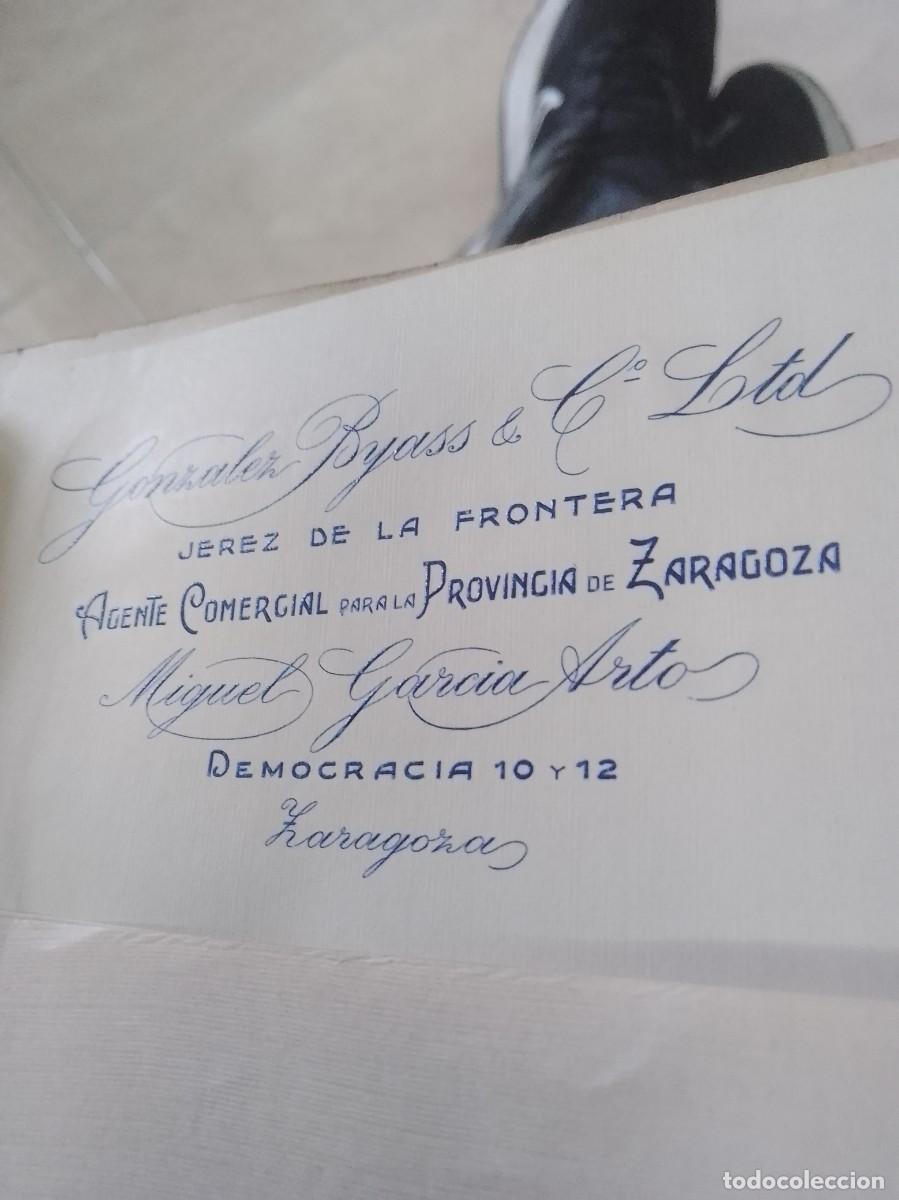 Gonzalez Byass & Cº Ltd
JEREZ DE LA FRONTERA
AGENTE COMERCIAL PARA LA PROVINCIA DE ZARAGOZA
Miguel Garcia Arto
DEMOCRACIA 10 Y 12
Zaragoza
todocoleccion